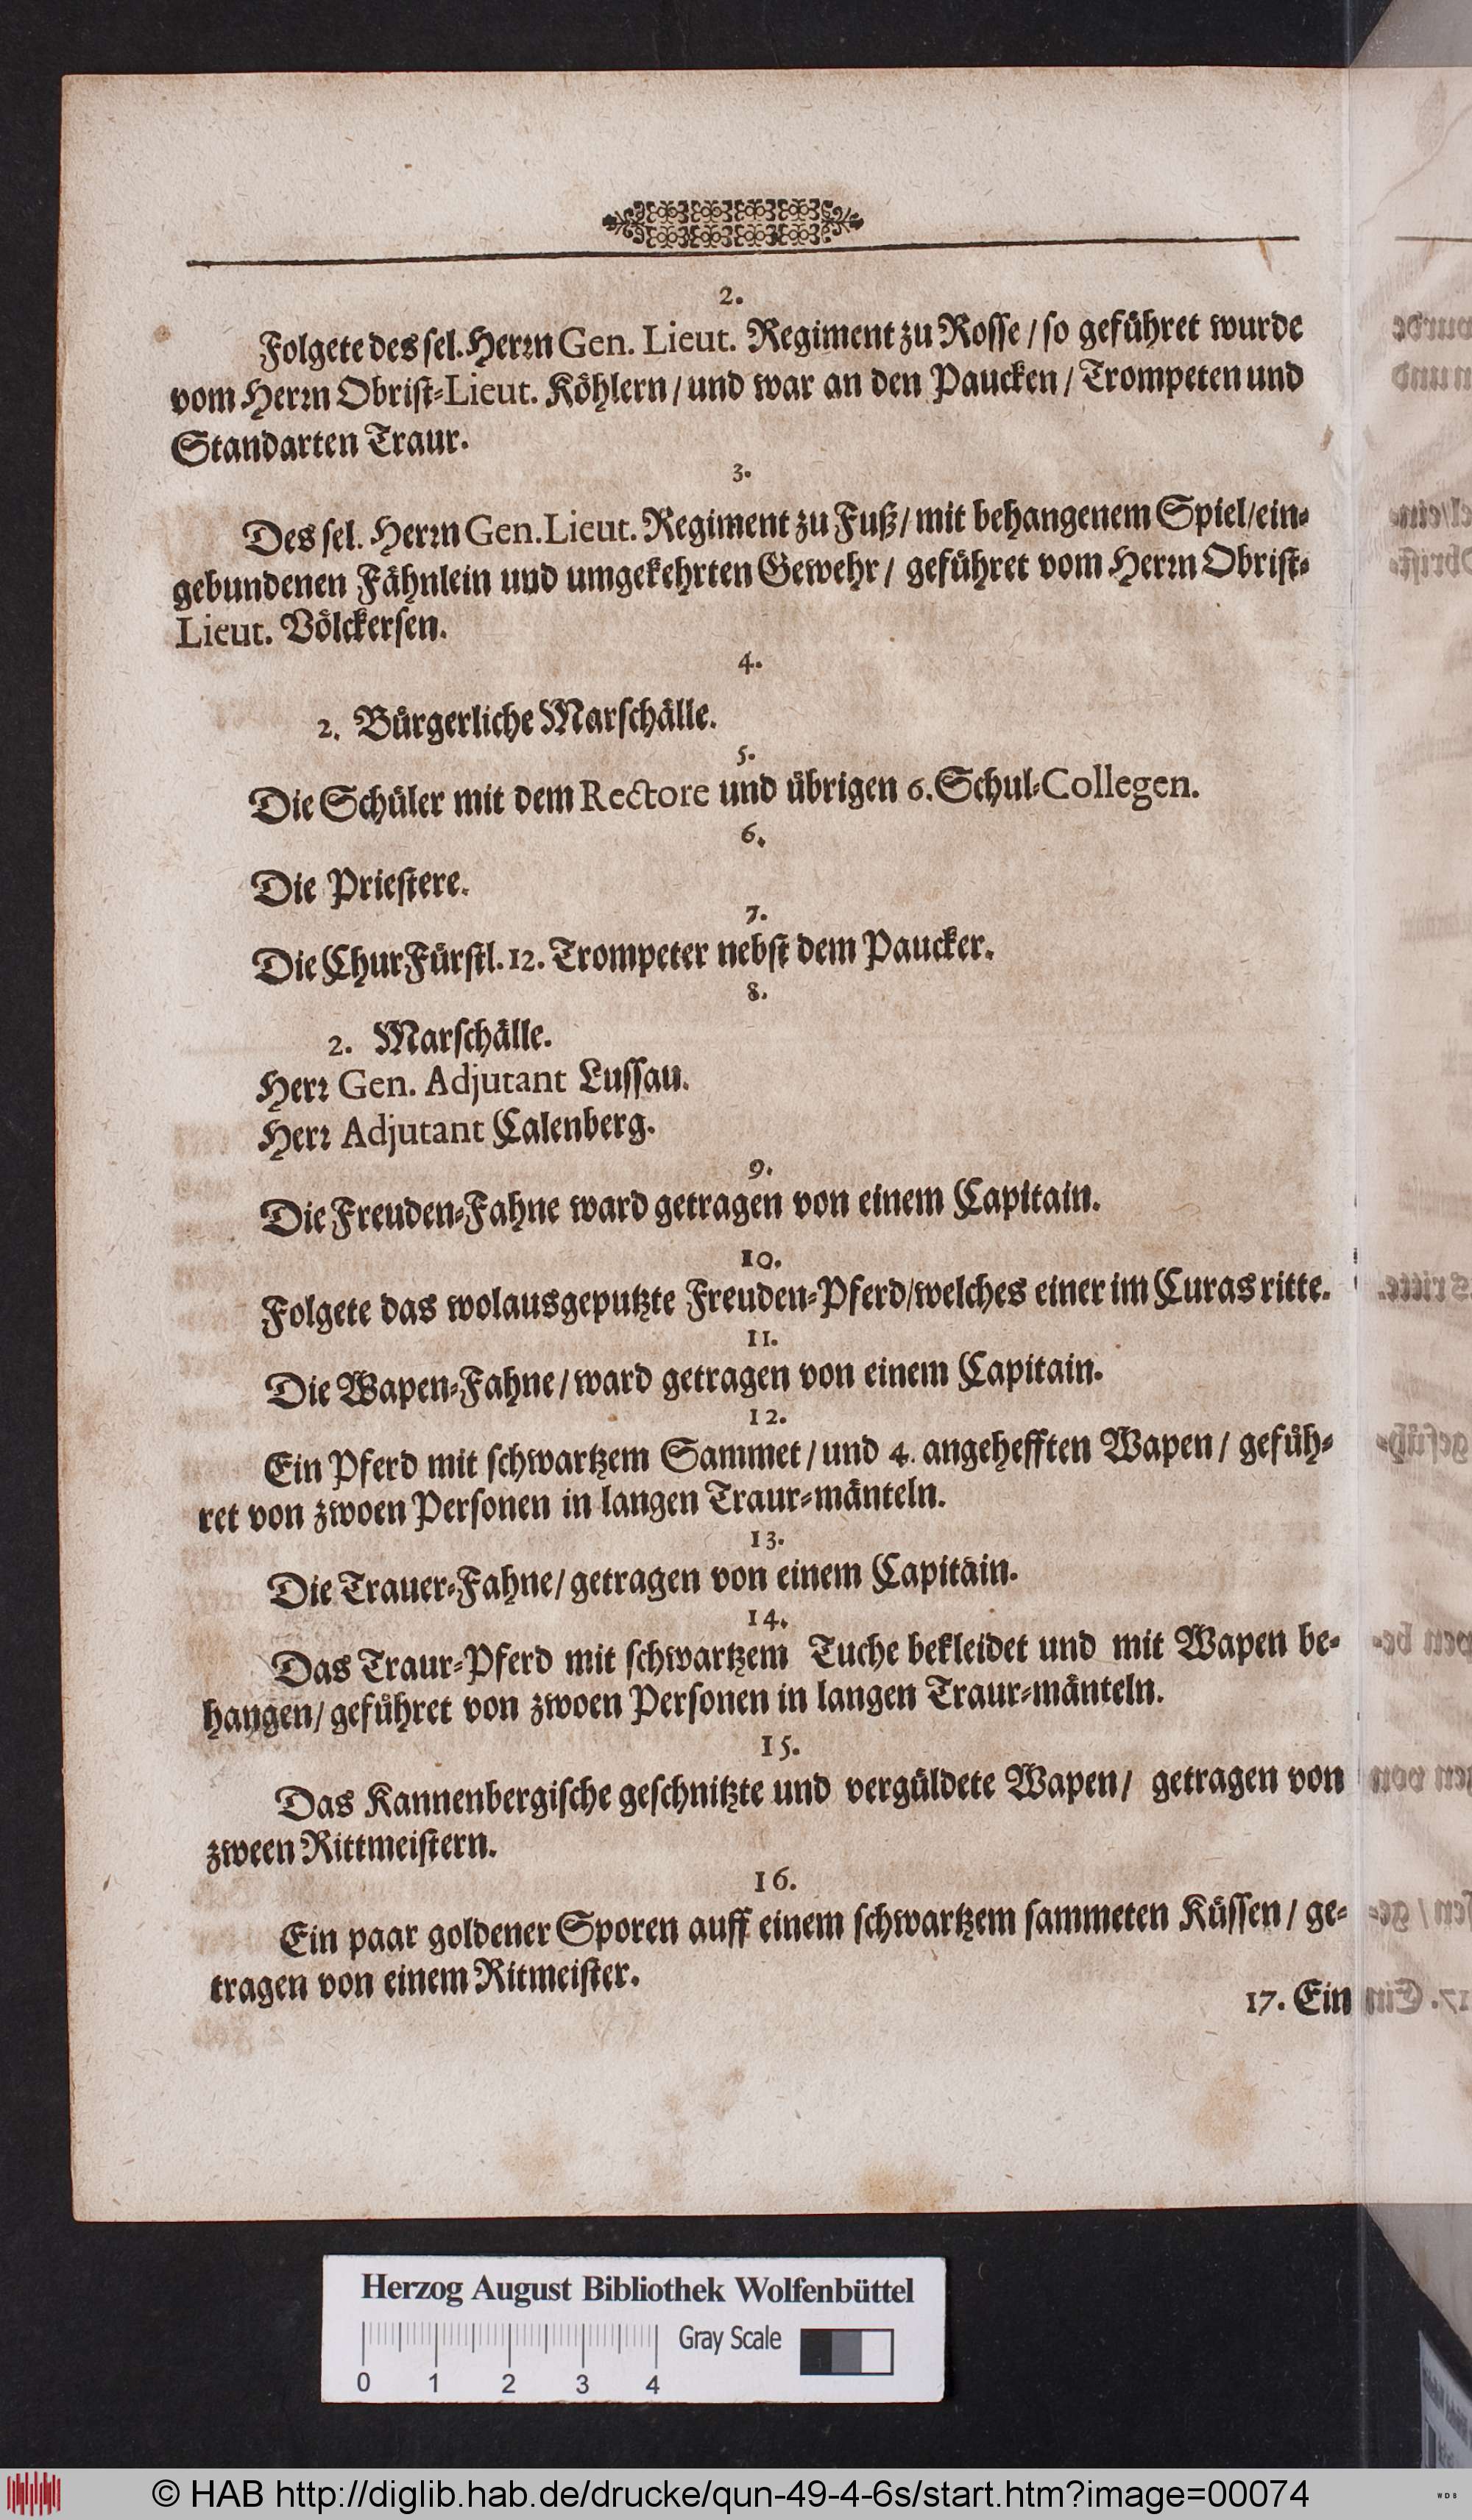 2.
Folgete des ſel. Herꝛn Gen. Lieut. Regiment zu Roſſe / ſo gefuͤhret wurde
vom Herꝛn Obriſt-Lieut. Koͤhlern / und war an den Paucken / Trompeten und
Standarten Traur.
3.
Des ſel. Herꝛn Gen. Lieut. Regiment zu Fuß / mit behangenem Spiel / ein-
gebundenen Faͤhnlein und umgekehrten Gewehr / gefuͤhret vom Herꝛn Obriſt-
Lieut. Voͤlckerſen.
4.
2. Buͤrgerliche Marſchaͤlle.
5.
Die Schuͤler mit dem Rectore und uͤbrigen 6. Schul-Collegen.
6.
Die Prieſtere.
7.
Die ChurFuͤrſtl. 12. Trompeter nebſt dem Paucker.
8.
2. Marſchaͤlle.
Herꝛ Gen. Adjutant Luſſau.
Herꝛ Adjutant Calenberg.
9.
Die Freuden-Fahne ward getragen von einem Capitain.
10.
Folgete das wolausgeputzte Freuden-Pferd / welches einer im Curas ritte.
11.
Die Wapen-Fahne / ward getragen von einem Capitain.
12.
Ein Pferd mit ſchwartzem Sammet / und 4. angehefften Wapen / gefuͤh-
ret von zwoen Perſonen in langen Traur-maͤnteln.
13.
Die Trauer-Fahne / getragen von einem Capitain.
14.
Das Traur-Pferd mit ſchwartzem Tuche bekleidet und mit Wapen be-
hangen / gefuͤhret von zwoen Perſonen in langen Traur-maͤnteln.
15.
Das Kannenbergiſche geſchnitzte und verguͤldete Wapen / getragen von
zween Rittmeiſtern.
16.
Ein paar goldener Sporen auff einem ſchwartzem ſammeten Kuͤſſen / ge-
tragen von einem Ritmeiſter.
17. Ein
Herzog August Bibliothek Wolfenbüttel
Gray Scale
0 1 2 3 4
© HAB http://diglib.hab.de/drucke/qun-49-4-6s/start.htm?image=00074
WDB